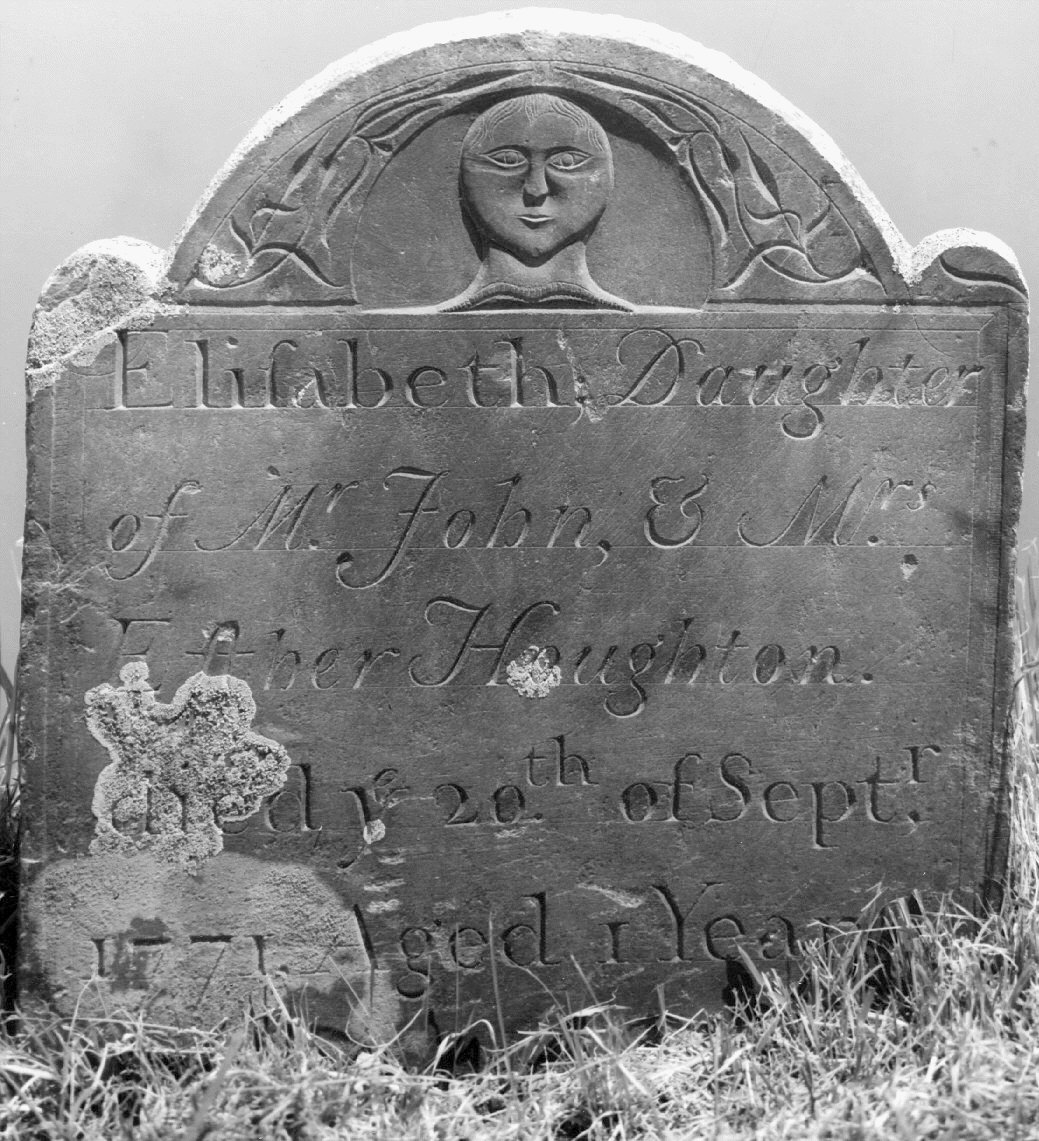 Eliſabeth, Daughter
of Mr. John, & Mrs.
Eſther Houghton.
died ye 20th. of Septr.
1771. Aged 1 Year